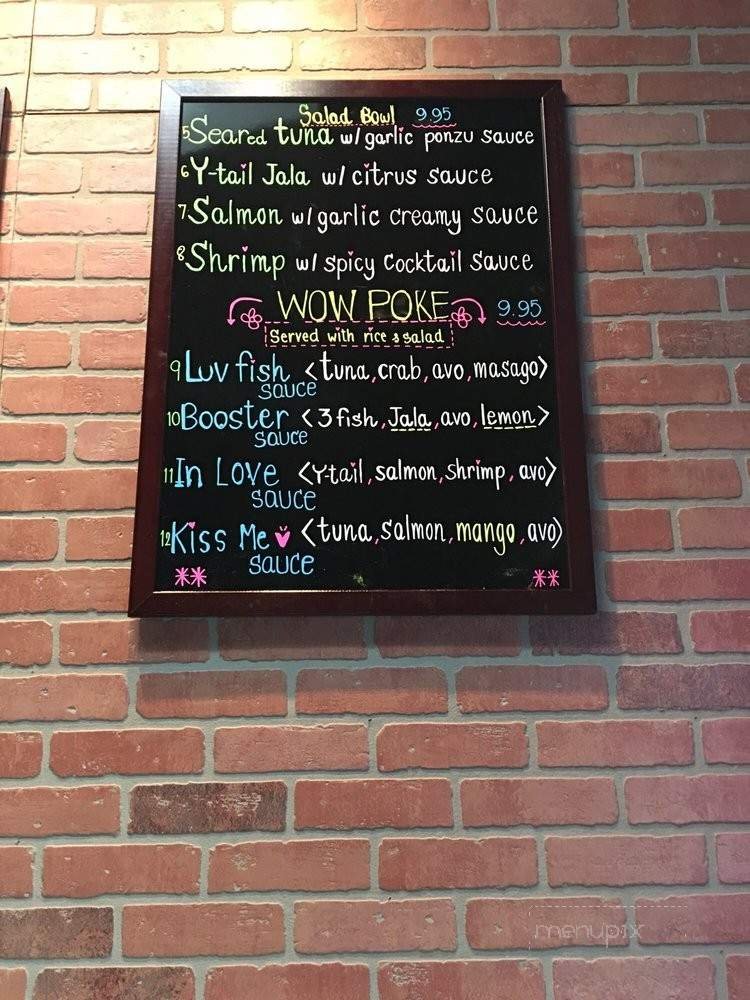 Salad Bowl 9.95
5 Seared tuna w/ garlic ponzu sauce
6 Y-tail Jala w/ citrus sauce
7 Salmon w/ garlic creamy sauce
8 Shrimp w/ spicy cocktail sauce
WOW POKE 9.95
Served with rice & salad
9 Luv fish <tuna, crab, avo, masago>
sauce
10 Booster <3 fish, Jala, avo, lemon>
sauce
11 In Love <Y-tail, salmon, shrimp, avo>
sauce
12 Kiss Me <tuna, salmon, mango, avo>
sauce
menupix